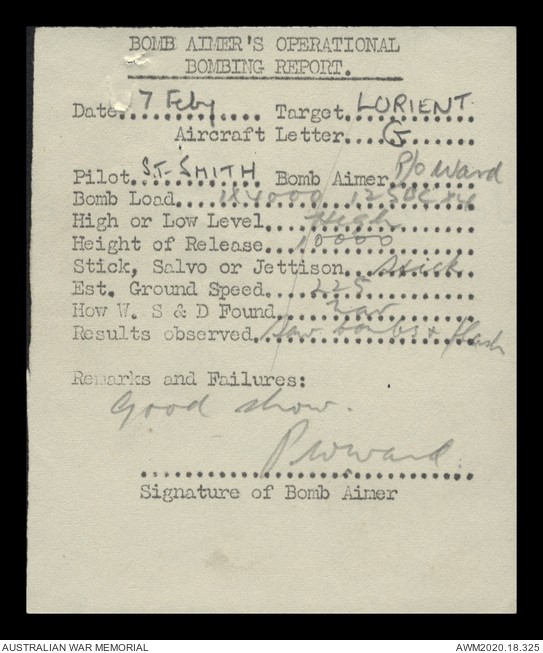 BOMB AIMER'S OPERATIONAL
BOMBING REPORT.
Date. 7 Feby .... Target. LORIENT
Aircraft Letter.... G......
Pilot. ST-SMITH Bomb Aimer P/O Ward
Bomb Load.... 1x4000 12 SBC x4
High or Low Level... High
Height of Release.. 10000
Stick, Salvo or Jettison.. Stick
Est. Ground Speed... 225
How W. S & D Found.... Nav
Results observed. Saw bombs + flash
Remarks and Failures:
Good show.
PWward
Signature of Bomb Aimer
AUSTRALIAN WAR MEMORIAL AWM2020.18.325